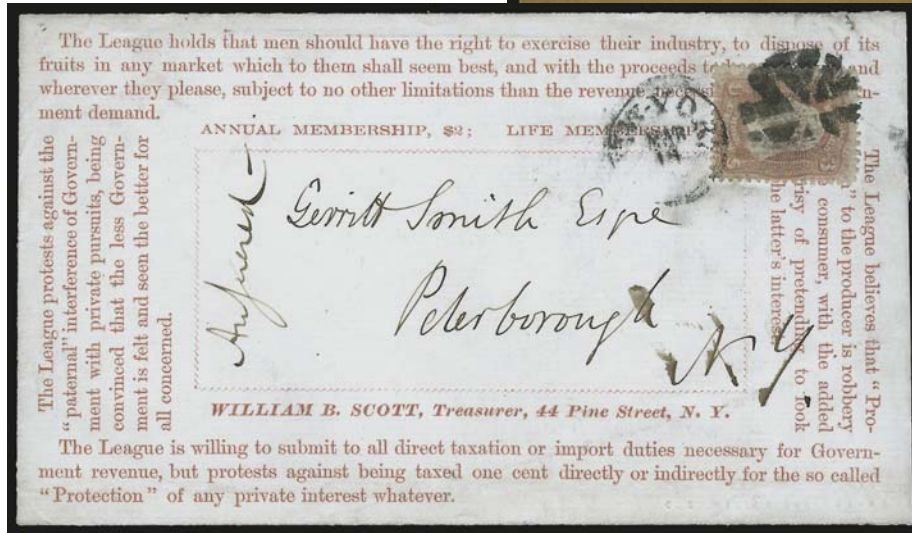 The League holds that men should have the right to exercise their industry, to dispose of its
fruits in any market which to them shall seem best, and with the proceeds to and
wherever they please, subject to no other limitations than the revenue
ment demand.
ANNUAL MEMBERSHIP, $2; LIFE MEMBERSHIP
The League protests against the
"paternal" interference of Govern-
ment with private pursuits, being
convinced that the less Govern-
ment is felt and seen the better for
all concerned.
Answered
Gerritt Smith Esqe
Peterborough
N Y.
The League believes that "Pro-
" to the producer is robbery
consumer, with the added
of pretending to look
the latter's interest
WILLIAM B. SCOTT, Treasurer, 44 Pine Street, N. Y.
The League is willing to submit to all direct taxation or import duties necessary for Govern-
ment revenue, but protests against being taxed one cent directly or indirectly for the so called
"Protection" of any private interest whatever.